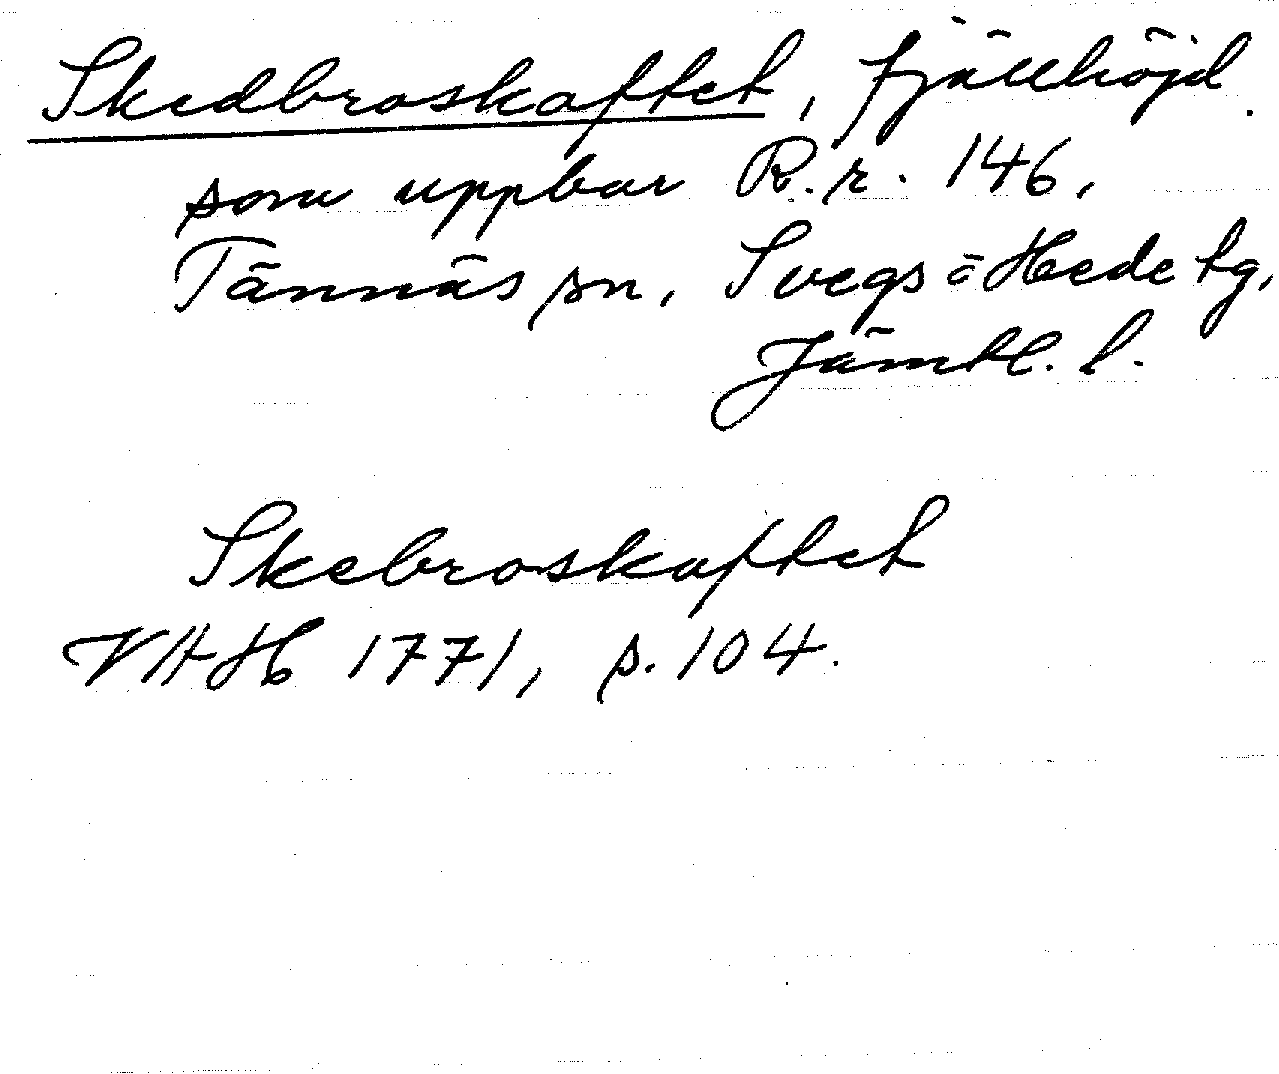 Skedbroskaftet, fjällhöjd
som uppbar R.r. 146,
Tännäs sn, Svegs o Hede tg,
Jämtl. l.
Skebroskaftet
VHH 1771, s. 104.